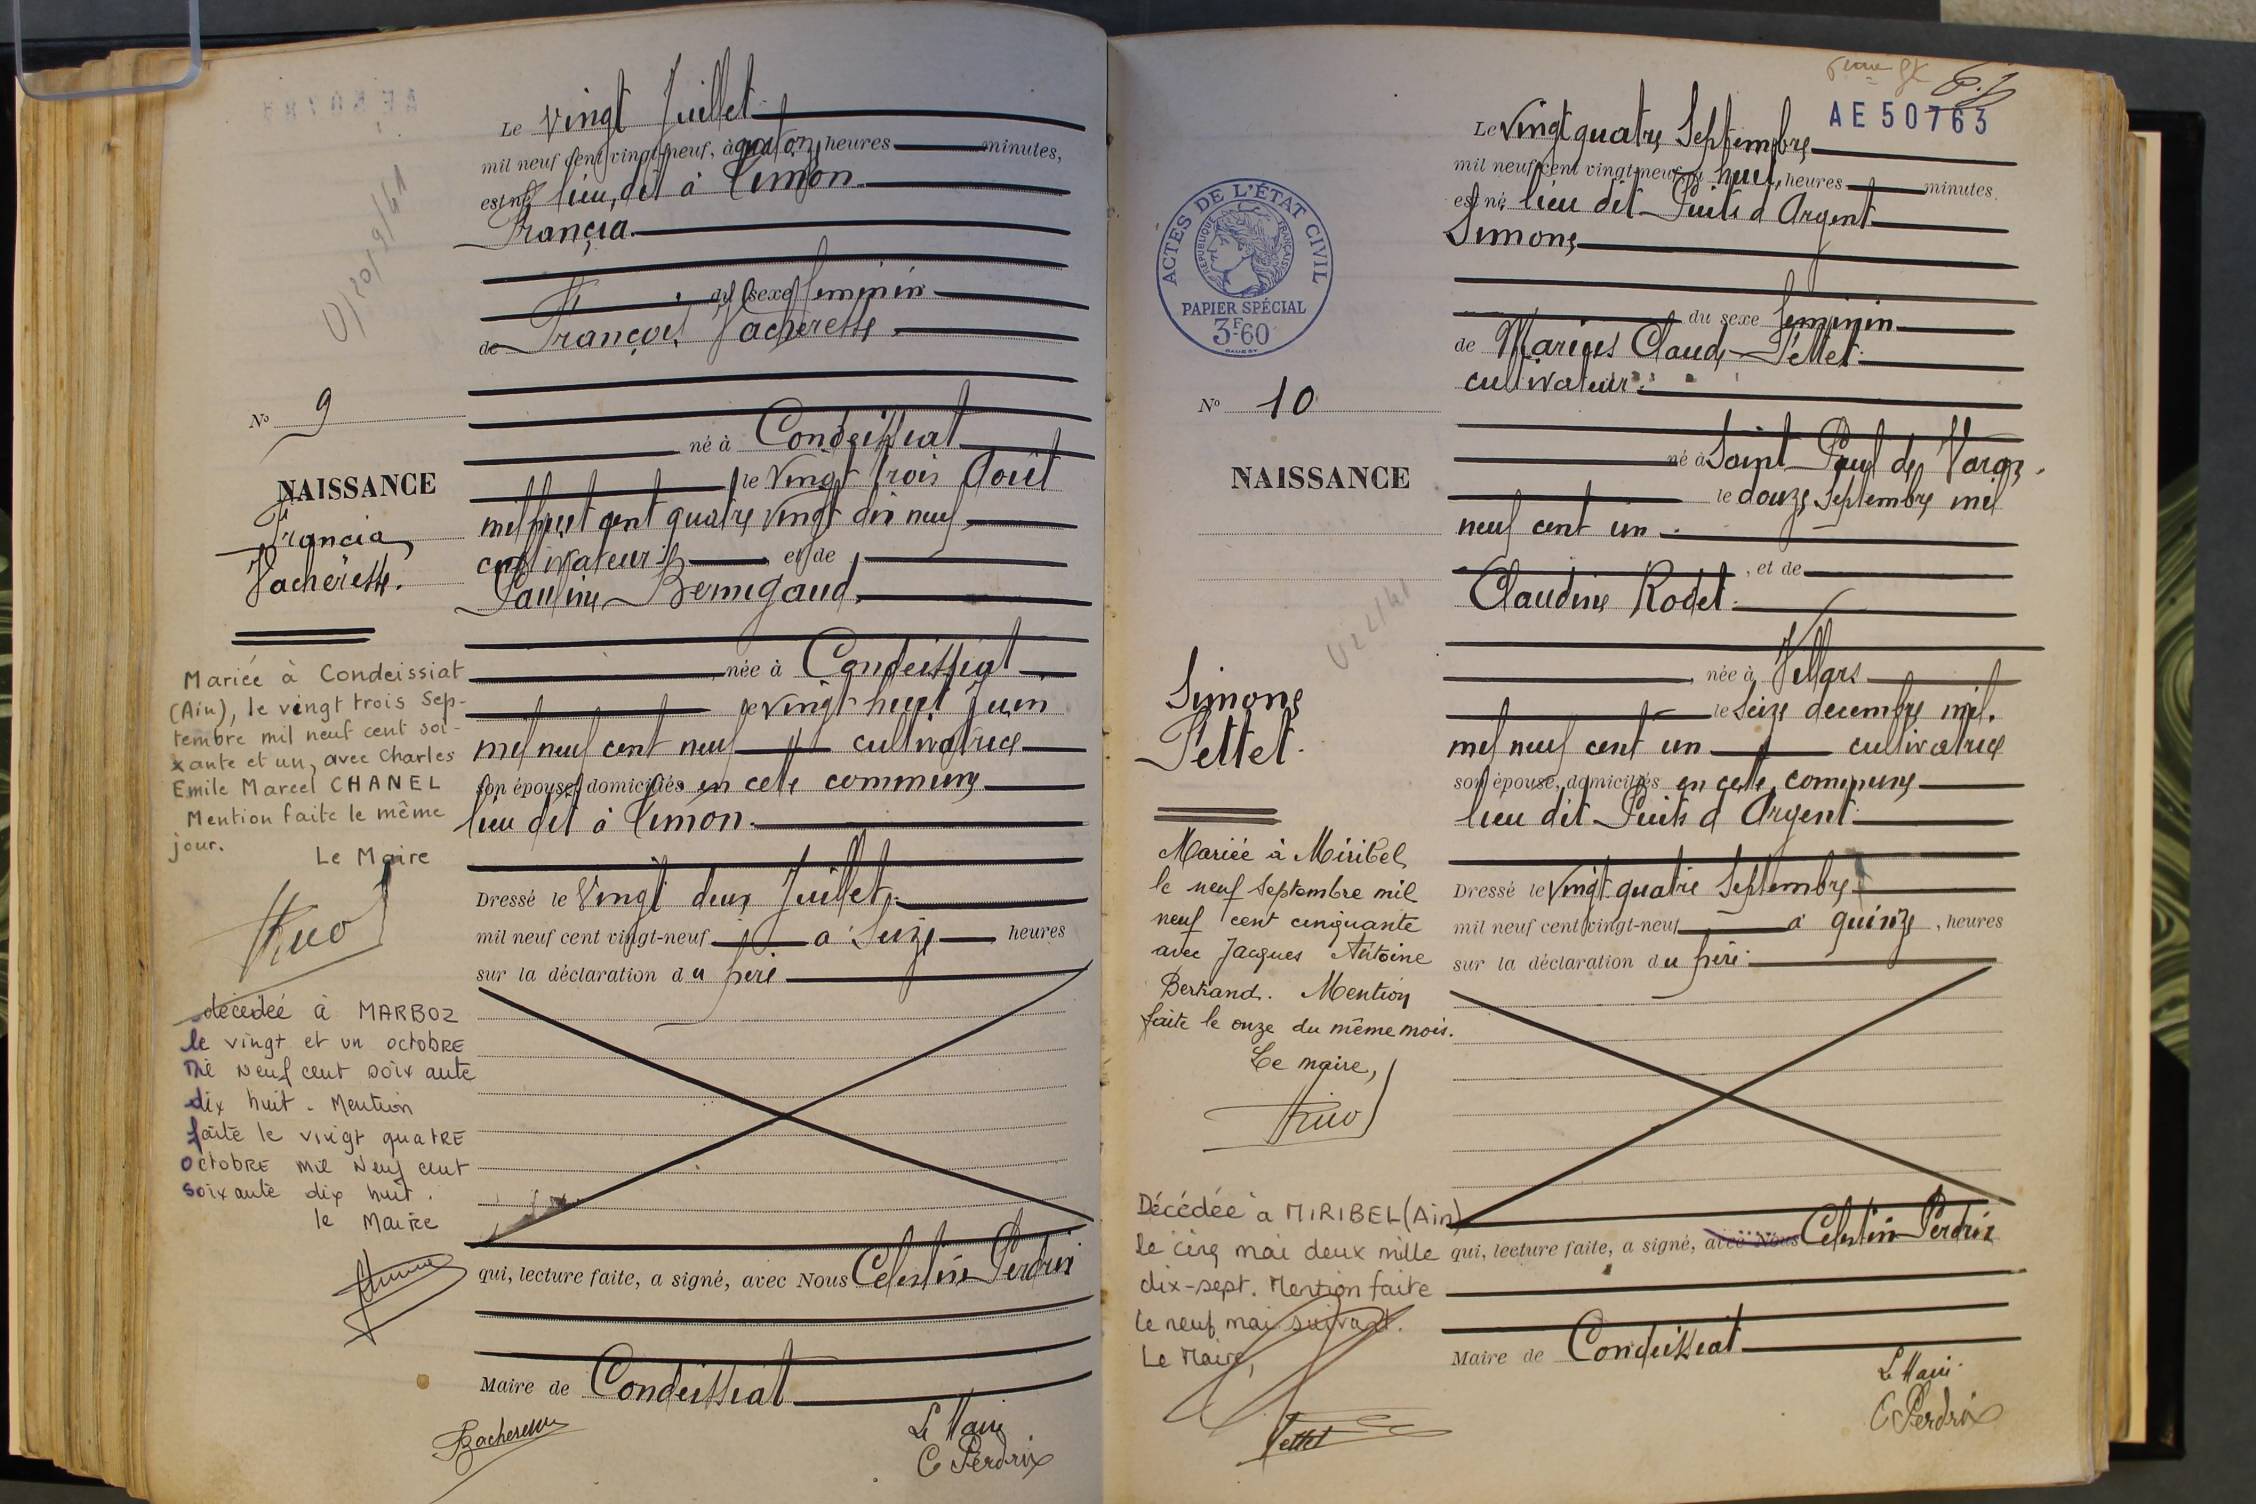 Le vingt Juillet
mil neuf cent vingt-neuf, à quatorze heures minutes,
est né lieu dit à Cimon
Francia
du sexe féminin
de François Vacheresse
N° 9
né à Condeissiat
le vingt trois Août
NAISSANCE
mil huit cent quatre vingt dix neuf
Francia
Vacheresse.
cultivateur et de
Pauline Bernigaud
née à Condeissiat
le vingt huit Juin
mil neuf cent neuf cultivatrice
son épouse, domiciliés en cette commune
lieu dit à Cimon
Dressé le vingt deux Juillet
mil neuf cent vingt-neuf à Seize heures
sur la déclaration du père
Mariée à Condeissiat
(Ain), le vingt trois Sep-
tembre mil neuf cent soi-
xante et un, avec Charles
Emile Marcel CHANEL
Mention faite le même
jour.
Le Maire
décédée à MARBOZ
le vingt et un octobre
mil neuf cent soixante
dix huit. Mention
faite le vingt quatre
octobre mil neuf cent
soixante dix huit.
le Maire
qui, lecture faite, a signé, avec Nous Célestin Perdrix
Maire de Condeissiat
Vacheresse
Le Maire
C Perdrix
AE 50763
Le vingt quatre Septembre
mil neuf cent vingt-neuf à huit heures minutes.
est né lieu dit Puits d'Argent
Simone
ACTES DE L'ÉTAT CIVIL
RÉPUBLIQUE FRANÇAISE
PAPIER SPÉCIAL
3F60
du sexe féminin
de Marius Claude Pettet
cultivateur
N° 10
né à Saint Paul de Varax
le douze Septembre mil
NAISSANCE
neuf cent un
, et de
Claudine Rodet
née à Villars
le Seize décembre mil
mil neuf cent un cultivatrice
son épouse, domiciliés en cette commune
lieu dit Puits d'Argent
Dressé le vingt quatre Septembre
mil neuf cent vingt-neuf à quinze, heures
sur la déclaration du père
Simone
Pettet
Mariée à Miribel
le neuf septembre mil
neuf cent cinquante
avec Jacques Antoine
Bertrand. Mention
faite le onze du même mois.
Le maire,
Décédée à MIRIBEL (Ain)
le cinq mai deux mille
dix-sept. Mention faite
le neuf mai suivant.
Le Maire,
qui, lecture faite, a signé, avec Nous Célestin Perdrix
Maire de Condeissiat
Pettet
Le Maire
C Perdrix